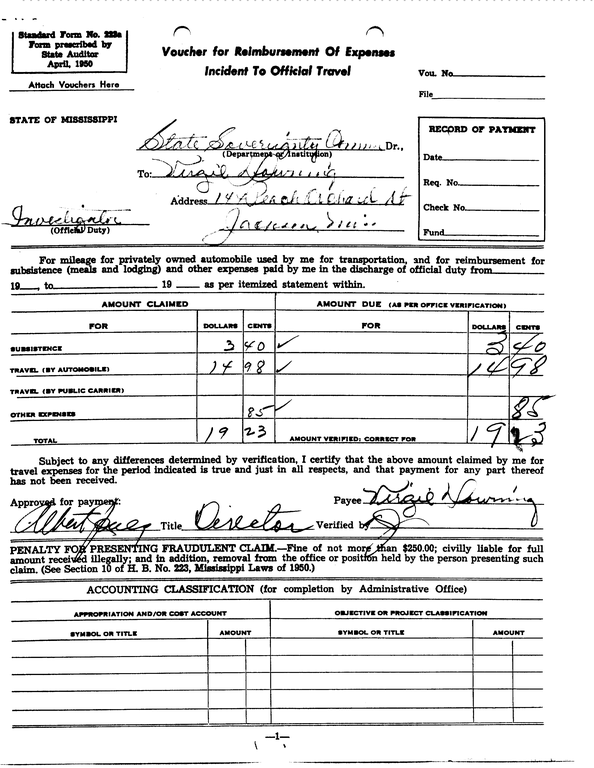 Standard Form No. 223a
Form prescribed by
State Auditor
April, 1950
Attach Vouchers Here
Voucher for Reimbursement Of Expenses
Incident To Official Travel
Vou. No.
File
STATE OF MISSISSIPPI
State Sovereignty Comm Dr.,
(Department or Institution)
To: Virgil Downing
Address Peach Orchard St
Jackson, Miss
Investigator
(Official Duty)
RECORD OF PAYMENT
Date
Req. No.
Check No.
Fund
For mileage for privately owned automobile used by me for transportation, and for reimbursement for
subsistence (meals and lodging) and other expenses paid by me in the discharge of official duty from
19 , to 19 as per itemized statement within.
AMOUNT CLAIMED AMOUNT DUE (AS PER OFFICE VERIFICATION)
FOR DOLLARS CENTS FOR DOLLARS CENTS
SUBSISTENCE 3 40 ✓ 3 40
TRAVEL (BY AUTOMOBILE) 14 98 ✓ 14 98
TRAVEL (BY PUBLIC CARRIER)
OTHER EXPENSES 85 ✓ 85
TOTAL 19 23 AMOUNT VERIFIED; CORRECT FOR 19 23
Subject to any differences determined by verification, I certify that the above amount claimed by me for
travel expenses for the period indicated is true and just in all respects, and that payment for any part thereof
has not been received.
Approved for payment: Payee Virgil Downing
Albert Jones Title Director Verified by
PENALTY FOR PRESENTING FRAUDULENT CLAIM.—Fine of not more than $250.00; civilly liable for full
amount received illegally; and in addition, removal from the office or position held by the person presenting such
claim. (See Section 10 of H. B. No. 223, Mississippi Laws of 1950.)
ACCOUNTING CLASSIFICATION (for completion by Administrative Office)
APPROPRIATION AND/OR COST ACCOUNT OBJECTIVE OR PROJECT CLASSIFICATION
SYMBOL OR TITLE AMOUNT SYMBOL OR TITLE AMOUNT
—1—